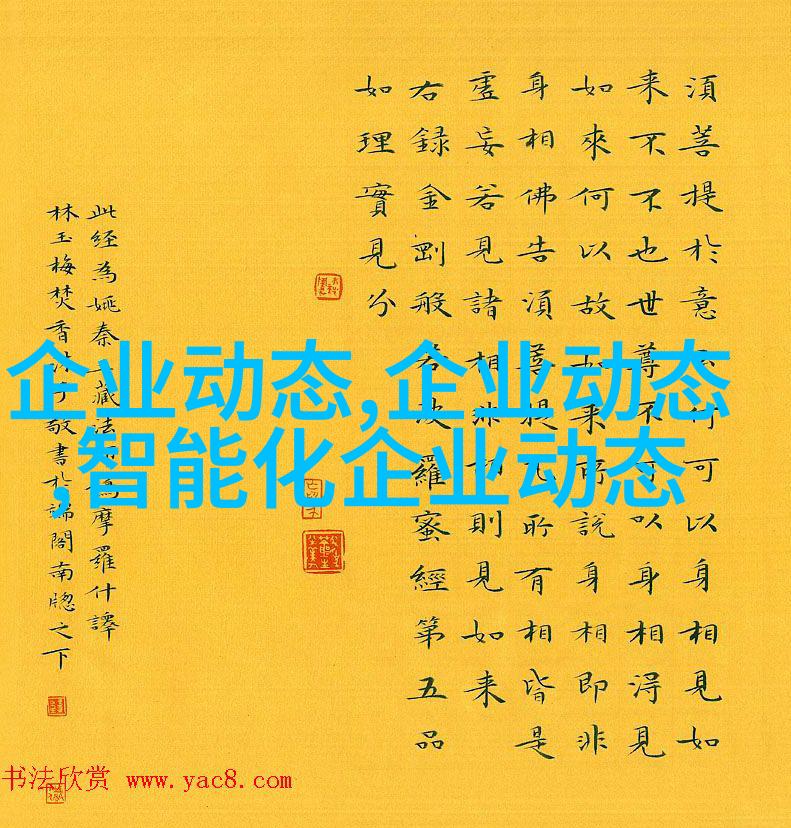 須菩提於意云何可以身相見如
来不不也世尊不可以身相淂見
如來何以故如来所說身相即非
身相佛告須菩提凡所有相皆是
虛妄若見諸相非相則見如来
右録金剛般若波羅蜜經第五品
如理實見分
此経為姚秦三藏法師鳩摩羅什譯
林玉梅焚香沐手敬書於端閣南窓之下
企业动态,企业动态
,智能化企业动态
书法欣赏 www.yac8.com